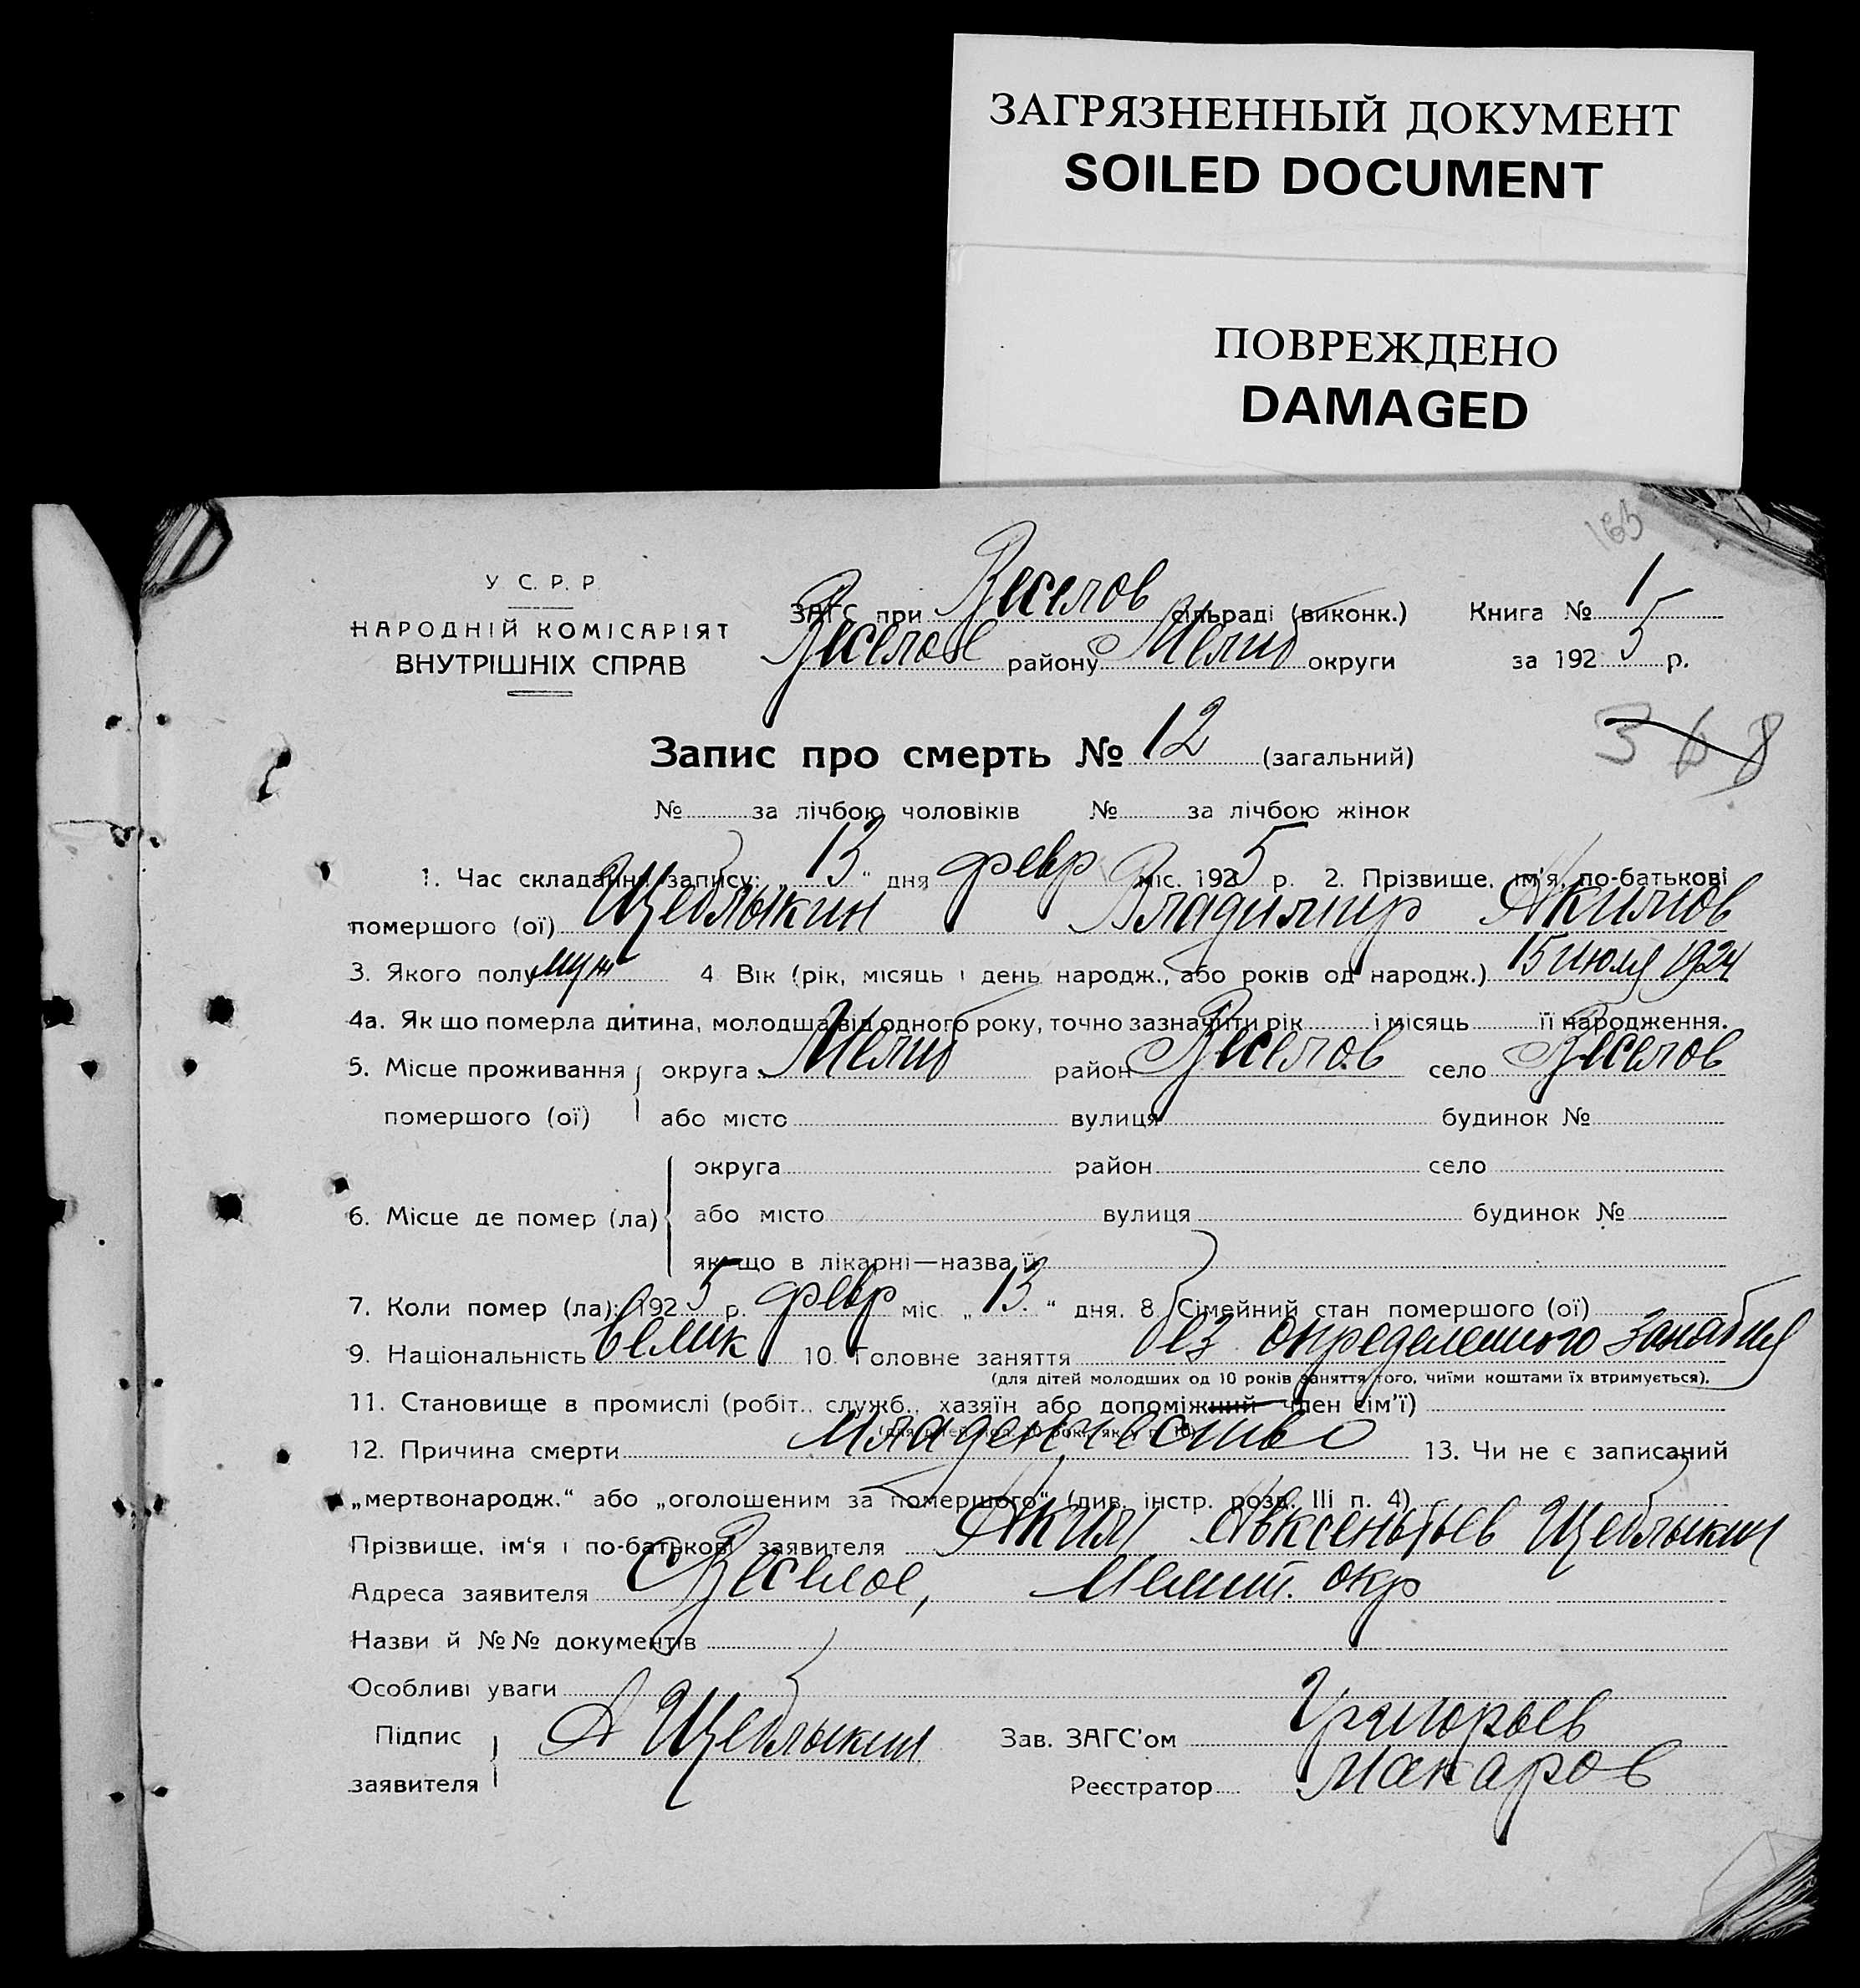 ЗАГРЯЗНЕННЫЙ ДОКУМЕНТ
SOILED DOCUMENT
ПОВРЕЖДЕНО
DAMAGED
165
У С. Р. Р.
НАРОДНІЙ КОМІСАРІЯТ
ВНУТРІШНІХ СПРАВ
ЗАГС при Веселов сільраді (виконк.) Книга № 1
Веселов району Мелит округи за 1925 р.
368
Запис про смерть № 12 (загальний)
№ за лічбою чоловіків № за лічбою жінок
1. Час складання запису: „13“ дня февр міс. 1925 р. 2. Прізвище, ім'я, по-батькові
помершого (ої) Щеблыкин Владимир Акимов
3. Якого полу муж 4 Вік (рік, місяць і день народж., або років од народж.) 15 июля 1924
4а. Як що померла дитина, молодша від одного року, точно зазначити рік і місяць її народження.
5. Місце проживання округа Мелит район Веселов село Веселов
помершого (ої) або місто вулиця будинок №
округа район село
6. Місце де помер (ла) або місто вулиця будинок №
як що в лікарні—назва її
7. Коли помер (ла): 1925 р. февр міс. „13“ дня. 8. Сімейний стан помершого (ої)
9. Національність велик 10. Головне заняття без определенного занятия
(для дітей молодших од 10 років заняття того, чиїми коштами їх втримується).
11. Становище в промислі (робіт., служб., хазяїн або допоміжний член сім'ї)
12. Причина смерти младенчество 13. Чи не є записаний
„мертвонародж.“ або „оголошеним за помершого“ (див. інстр. розд. III п. 4)
Прізвище, ім'я і по-батькові заявителя Аким Авксентьев Щеблыкин
Адреса заявителя с Веселое, Мелит. окр
Назви й №№ документів
Особливі уваги
Підпис заявителя А Щеблыкин Зав. ЗАГС'ом Григорьев
Реєстратор Макаров